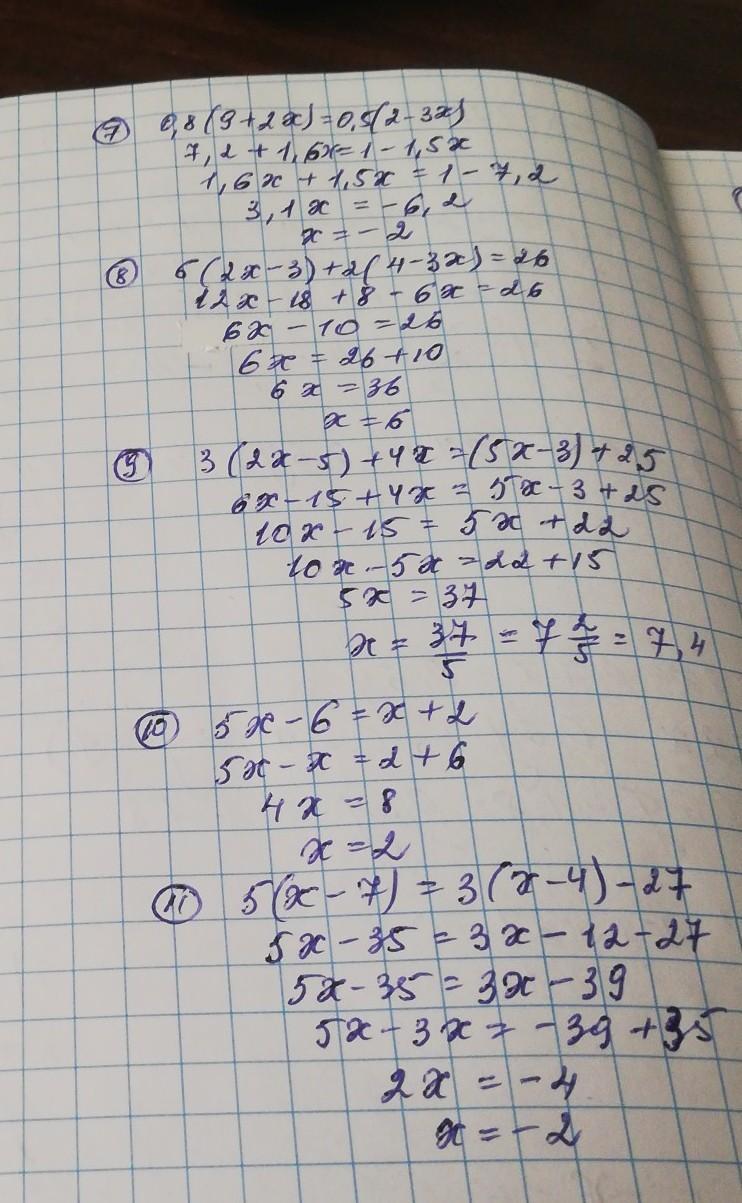 7 0,8(9+2x)=0,5(2-3x)
7,2+1,6x=1-1,5x
1,6x+1,5x=1-7,2
3,1x=-6,2
x=-2
8 6(2x-3)+2(4-3x)=26
12x-18+8-6x=26
6x-10=26
6x=26+10
6x=36
x=6
9 3(2x-5)+4x=(5x-3)+25
6x-15+4x=5x-3+25
10x-15=5x+22
10x-5x=22+15
5x=37
x=37/5=7 2/5=7,4
10 5x-6=x+2
5x-x=2+6
4x=8
x=2
11 5(x-7)=3(x-4)-27
5x-35=3x-12-27
5x-35=3x-39
5x-3x=-39+35
2x=-4
x=-2